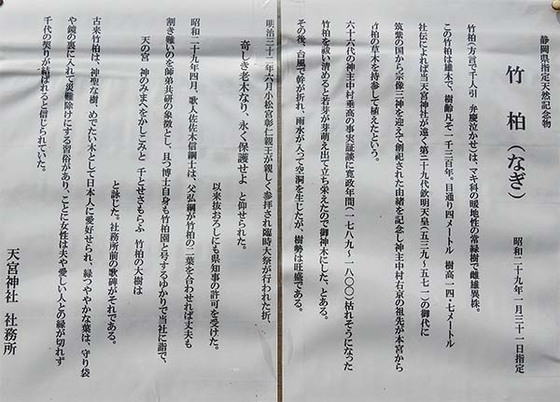 静岡県指定天然記念物
竹柏(なぎ)
昭和二十九年一月三十一日指定
竹柏(方言で千人引 弁慶泣かせ)は、マキ科の暖地性の常緑樹で雌雄異株。
この竹柏は雄木で、樹齢凡そ一千三百年。目通り四メートル 樹高一四・七メートル
社伝によれば当天宮神社が遠く第二十九代欽明天皇(五三九〜五七一)の御代に
筑紫の国から宗像三神を迎えて創祀された由緒を記念し神主中村右京の祖先が本宮から
の草木を持参して植えたという。
六十六代の神主中村乗高の事実証談に寛政年間(一七八九〜一八〇〇)枯れそうになった
竹柏を祓い清めると若芽が萌え出て立ち栄えたので御神木にした。とある。
その後、台風で幹が折れ、雨水が入って空洞を生じたが、樹勢は旺盛である。
明治三十二年六月小松宮彰仁親王が親しく参拝され臨時大祭が行われた折、
奇しき老木なり、永く保護せよ と仰せられた。
以来抜おろしにも県知事の許可を受けた。
昭和二十九年四月、歌人佐佐木信綱博士は、父弘綱が竹柏の二葉を合わせれば丈夫も
割き難いのを師弟共研の象徴とし、且つ博士自身も竹柏園と号するゆかりで当社に詣で、
天の宮 神のみまへをかしこみと 千とせさもらふ 竹柏の大樹は
と詠じた。社務所前の歌碑がそれである。
古来竹柏は、神聖な樹、めでたい木として日本人に愛好せられ、緑つややかな葉は、守り袋
や鏡の裏に入れて災難除けにする習俗があり、ことに女性は夫や愛しい人との縁が切れず
千代の契りが結ばれると信じられていた。
天宮神社 社務所